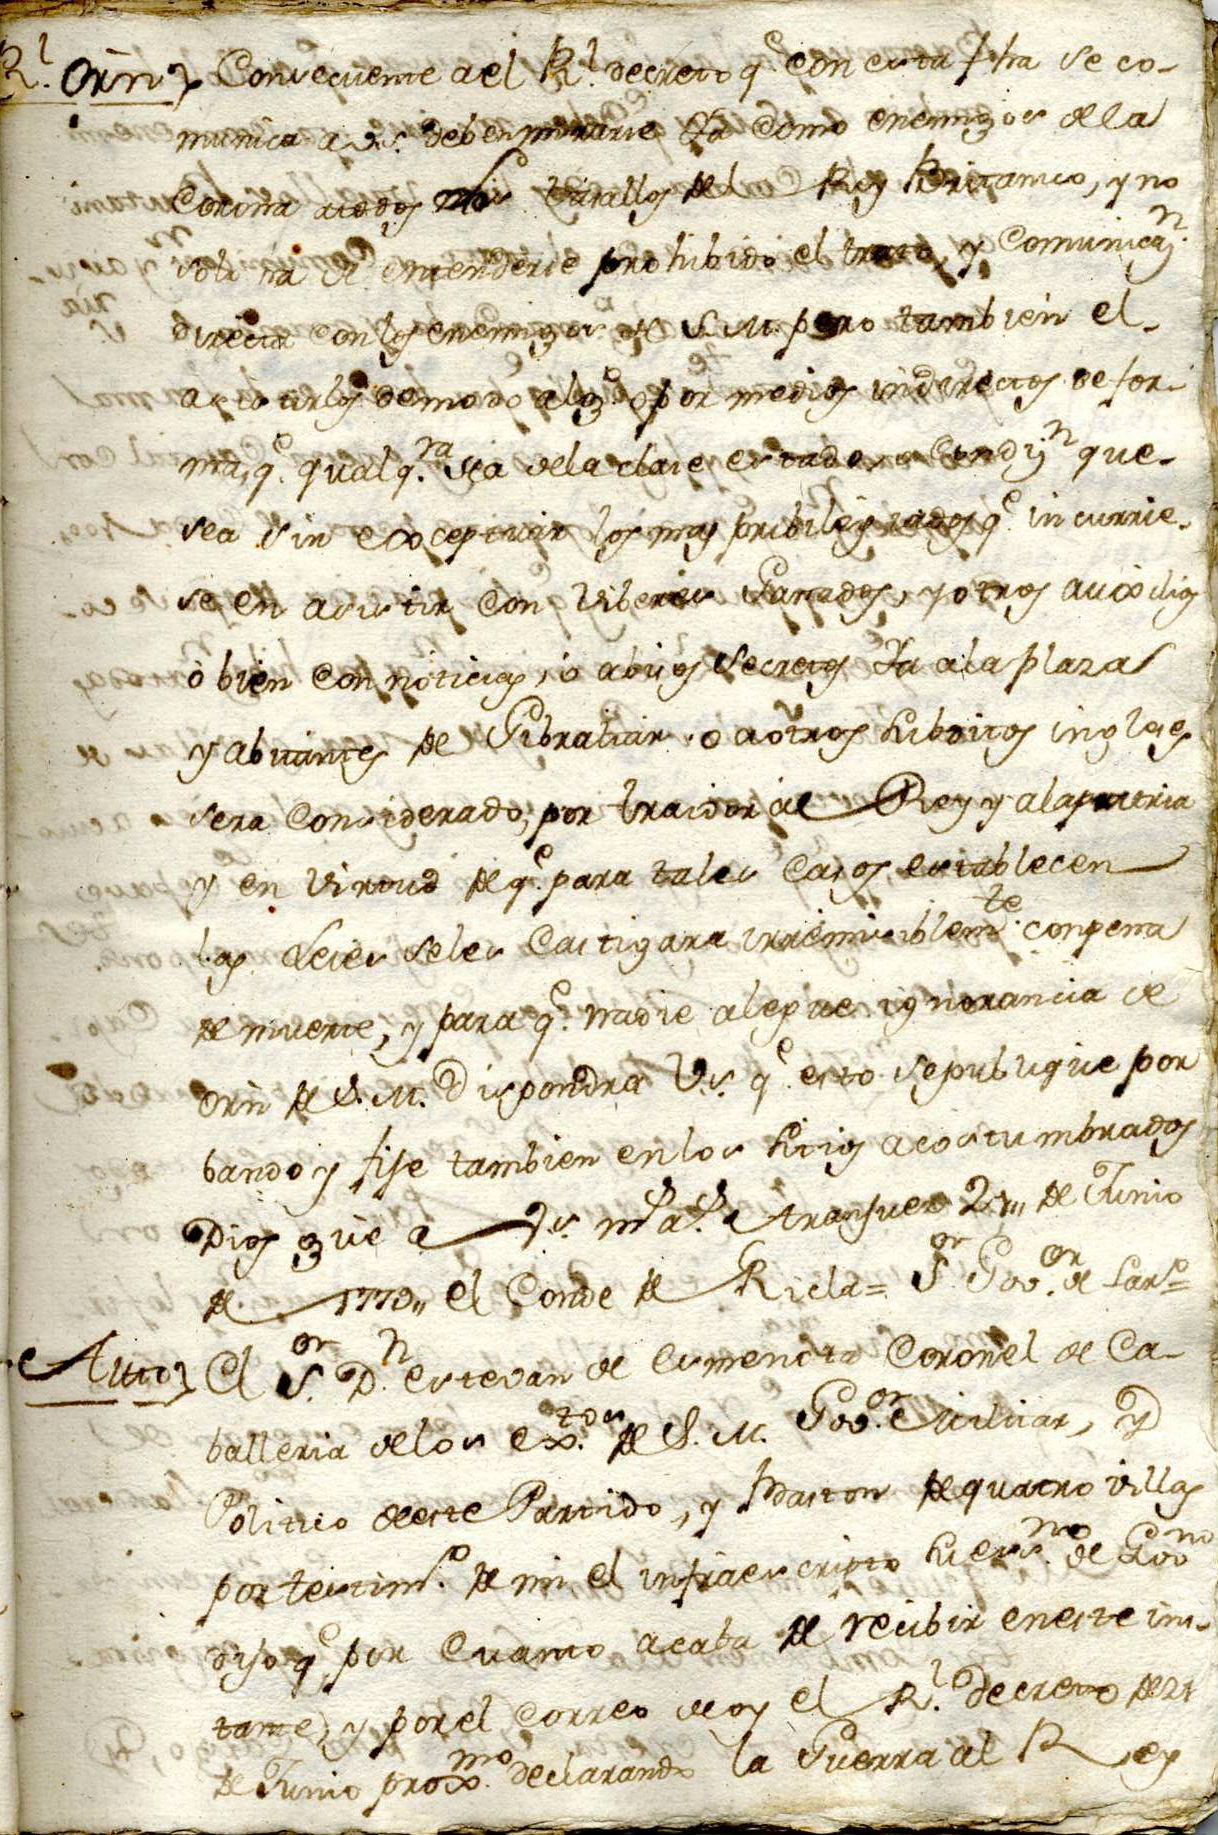 Rl. Orñ Consecuente a el Rl. decreto q.e con esta fha se co-
munica a V.S. deben mirarse Ya como enemigos de la
Corona a todos los Vasallos del Rey Britanico, y no
solo ha de entenderse prohibido el trato, y Comunicaz.n
directa con los enemigos de S.M. pero tambien el-
asistirlos de modo alg.o o por medios indirectos de for-
ma, q.e qualq.ra sea de la clase estado, o Condiz.n que-
sea sin exceptuar los mas pribilegiados q.e incurrie-
se en asistir con Viberes Ganados, y otros auxilios
ò bien con noticias, ò abisos secretos Ya a la plaza
y abitantes de Gibraltar o a otros subditos ingleses
sera Considerado, por traidor al Rey y a la patria
y en Virtud de q.e para tales Casos, establecen
las Leies se les Castigara irremisiblem.te con pena
de muerte, y para q.e nadie alegue ignorancia de
orñ de S.M. Dispondra V.S. q.e esto se publique por
bando y fije tambien en los sitios acostumbrados
Dios gue a V.S. m.s a.s Aranjuez 2 de Junio
de 1779,, el Conde de Ricla = S.or Gov.or de Lar.o
Auto El S.or D.n Estevan de Esmenota Coronel de Ca-
balleria de los Ex.tos de S.M. Gov.or Militar, y
Politico de este Partido, y Baston de quatro villas
por testim.o de mi el infraescripto su ess.no de Gov.no
dijo q.e por cuanto acaba de recibir en este ins-
tante, y por el correo de oy el Rl. Decreto de 21
de Junio prox.mo declarando la Guerra al Rey